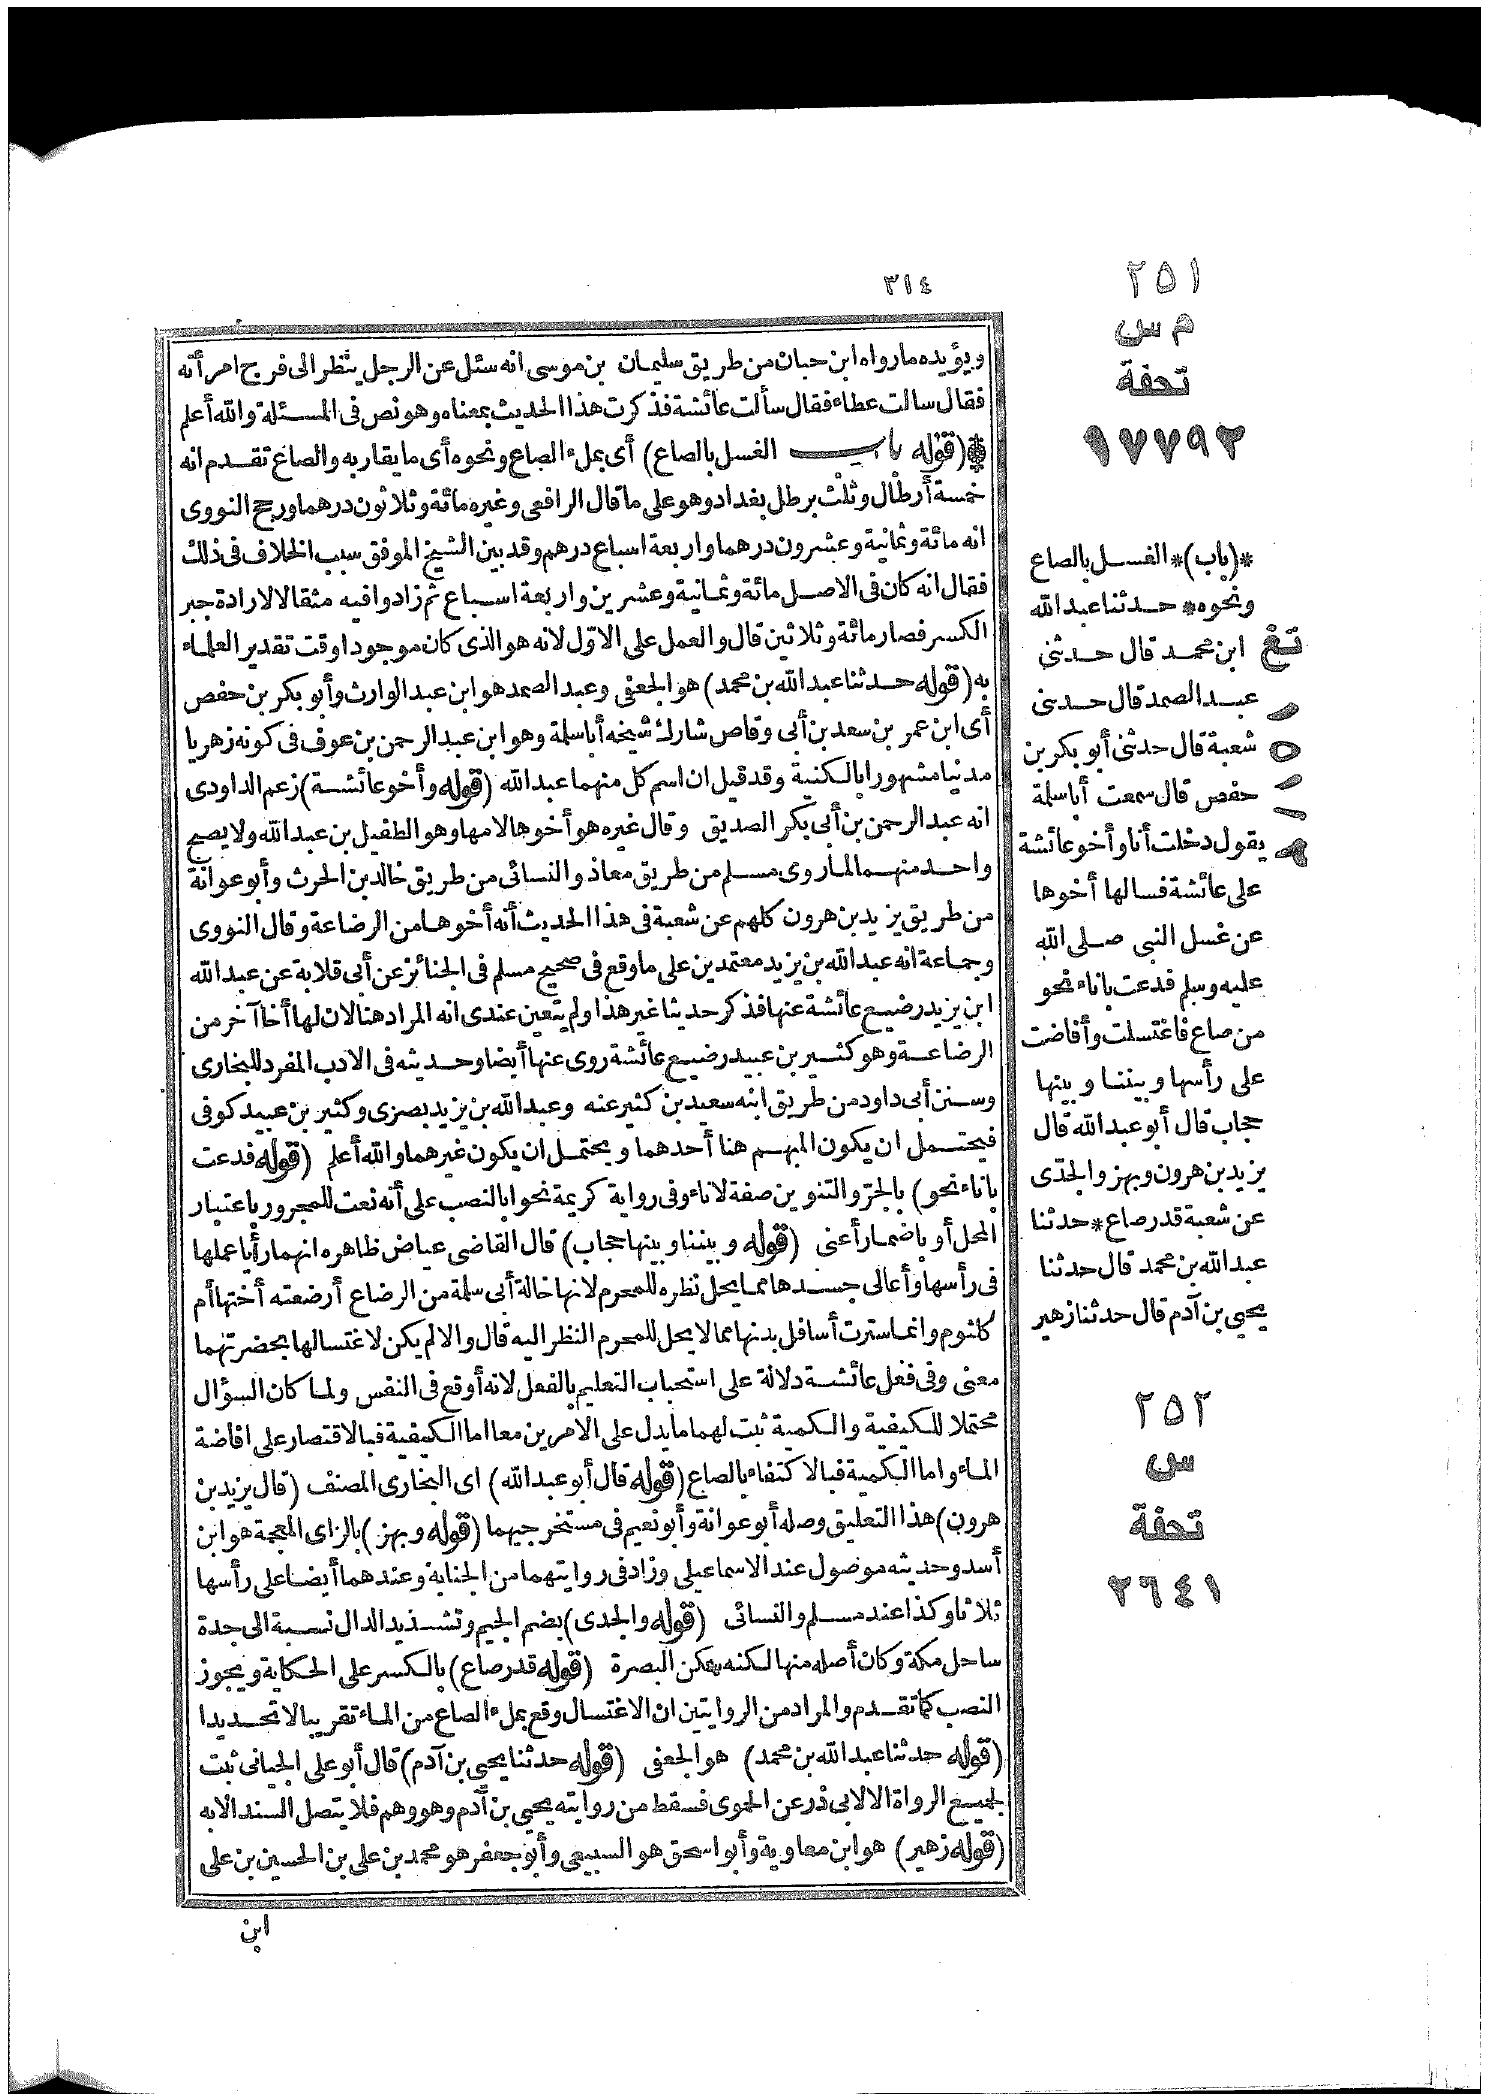 ٣١٤
ويؤيده مارواه ابن حبان من طريق سليمان بن موسى انه سئل عن الرجل ينظر الى فرج امرأته
فقال سالت عطاء فقال سألت عائشة فذكرت هذا الحديث بمعناه وهو نص فى المسئلة والله أعلم
*(قوله باب الغسل بالصاع) أى بملء الصاع ونحوه أى ما يقاربه والصاع تقدم انه
خمسة أرطال وثلث برطل بغداد وهو على ما قال الرافعى وغيره مائة وثلاثون درهما ورجح النووى
انه مائة وثمانية وعشرون درهما واربعة اسباع درهم وقد بين الشيخ الموفق سبب الخلاف فى ذلك
فقال انه كان فى الاصل مائة وثمانية وعشرين واربعة اسباع ثم زادوا فيه مثقالا لارادة جبر
الكسر فصار مائة وثلاثين قال والعمل على الاول لانه هو الذى كان موجودا وقت تقدير العلماء
به (قوله حدثنا عبد الله بن محمد) هو الجعفى وعبد الصمد هو ابن عبد الوارث وأبو بكر بن حفص
أى ابن عمر بن سعد بن أبى وقاص شارك شيخه أبا سلمة وهو ابن عبد الرحمن بن عوف فى كونه زهريا
مدنيا مشهورا بالكنية وقد قيل ان اسم كل منهما عبد الله (قوله وأخو عائشة) زعم الداودى
انه عبد الرحمن بن أبى بكر الصديق وقال غيره هو أخوها لامها وهو الطفيل بن عبد الله ولا يصح
واحد منهما لما روى مسلم من طريق معاذ والنسائى من طريق خالد بن الحرث وأبو عوانة
من طريق يزيد بن هرون كلهم عن شعبة فى هذا الحديث أنه أخوها من الرضاعة وقال النووى
وجماعة انه عبد الله بن يزيد معتمدين على ما وقع فى صحيح مسلم فى الجنائز عن أبى قلابة عن عبد الله
ابن يزيد رضيع عائشة عنها فذكر حديثا غير هذا ولم يتعين عندى انه المراد هنا لان لها أخا آخر من
الرضاعة وهو كثير بن عبيد رضيع عائشة روى عنها أيضا وحديثه فى الادب المفرد للبخارى
وسنن أبى داود من طريق ابنه سعيد بن كثير عنه وعبد الله بن يزيد بصرى وكثير بن عبيد كوفى
فيحتمل ان يكون المبهم هنا أحدهما ويحتمل ان يكون غيرهما والله أعلم (قوله فدعت
باناء نحو) بالجر والتنوين صفة لاناء وفى رواية كريمة نحوا بالنصب على أنه نعت للمجرور باعتبار
المحل أو باضمار أعنى (قوله وبيننا وبينها حجاب) قال القاضى عياض ظاهره انهما رأيا عملها
فى رأسها وأعالى جسدها مما يحل نظره للمحرم لانها خالة أبى سلمة من الرضاع أرضعته أختها أم
كلثوم وانما سترت أسافل بدنها مما لا يحل للمحرم النظر اليه قال والا لم يكن لاغتسالها بحضرتهما
معنى وفى فعل عائشة دلالة على استحباب التعليم بالفعل لانه أوقع فى النفس ولما كان السؤال
محتملا للكيفية والكمية ثبت لهما ما يدل على الامرين معا اما الكيفية فبالاقتصار على افاضة
الماء واما الكمية فبالاكتفاء بالصاع (قوله قال أبو عبد الله) اى البخارى المصنف (قال يزيد بن
هرون) هذا التعليق وصله أبو عوانة وأبو نعيم فى مستخرجيهما (قوله وبهز) بالزاى المعجمة هو ابن
أسد وحديثه موصول عند الاسماعيلى وزاد فى روايتهما من الجنابة وعندهما أيضا على رأسها
ثلاثا وكذا عند مسلم والنسائى (قوله والجدى) بضم الجيم وتشديد الدال نسبة الى جدة
ساحل مكة وكان أصله منها لكنه سكن البصرة (قوله قدر صاع) بالكسر على الحكاية ويجوز
النصب كما تقدم والمراد من الروايتين ان الاغتسال وقع بملء الصاع من الماء تقريبا لا تحديدا
(قوله حدثنا عبد الله بن محمد) هو الجعفى (قوله حدثنا يحيى بن آدم) قال أبو على الجيانى ثبت
لجميع الرواة الا لابى ذر عن الحموى فسقط من روايته يحيى بن آدم وهو وهم فلا يتصل السند الا به
(قوله زهير) هو ابن معاوية وأبو اسحق هو السبيعى وأبو جعفر هو محمد بن على بن الحسين بن على
ابن
٢٥١
م س
تحفة
١٧٧٩٢
*(باب)* الغسل بالصاع
ونحوه* حدثنا عبد الله
ابن محمد قال حدثنى
تغ
عبد الصمد قال حدثنى
شعبة قال حدثنى أبو بكر بن
حفص قال سمعت أبا سلمة
يقول دخلت أنا وأخو عائشة
على عائشة فسالها أخوها
عن غسل النبى صلى الله
عليه وسلم فدعت باناء نحو
من صاع فاغتسلت وأفاضت
على رأسها وبيننا وبينها
حجاب قال أبو عبد الله قال
يزيد بن هرون وبهز والجدى
عن شعبة قدر صاع* حدثنا
عبد الله بن محمد قال حدثنا
يحيى بن آدم قال حدثنا زهير
٢٥٢
س
تحفة
٢٦٤١